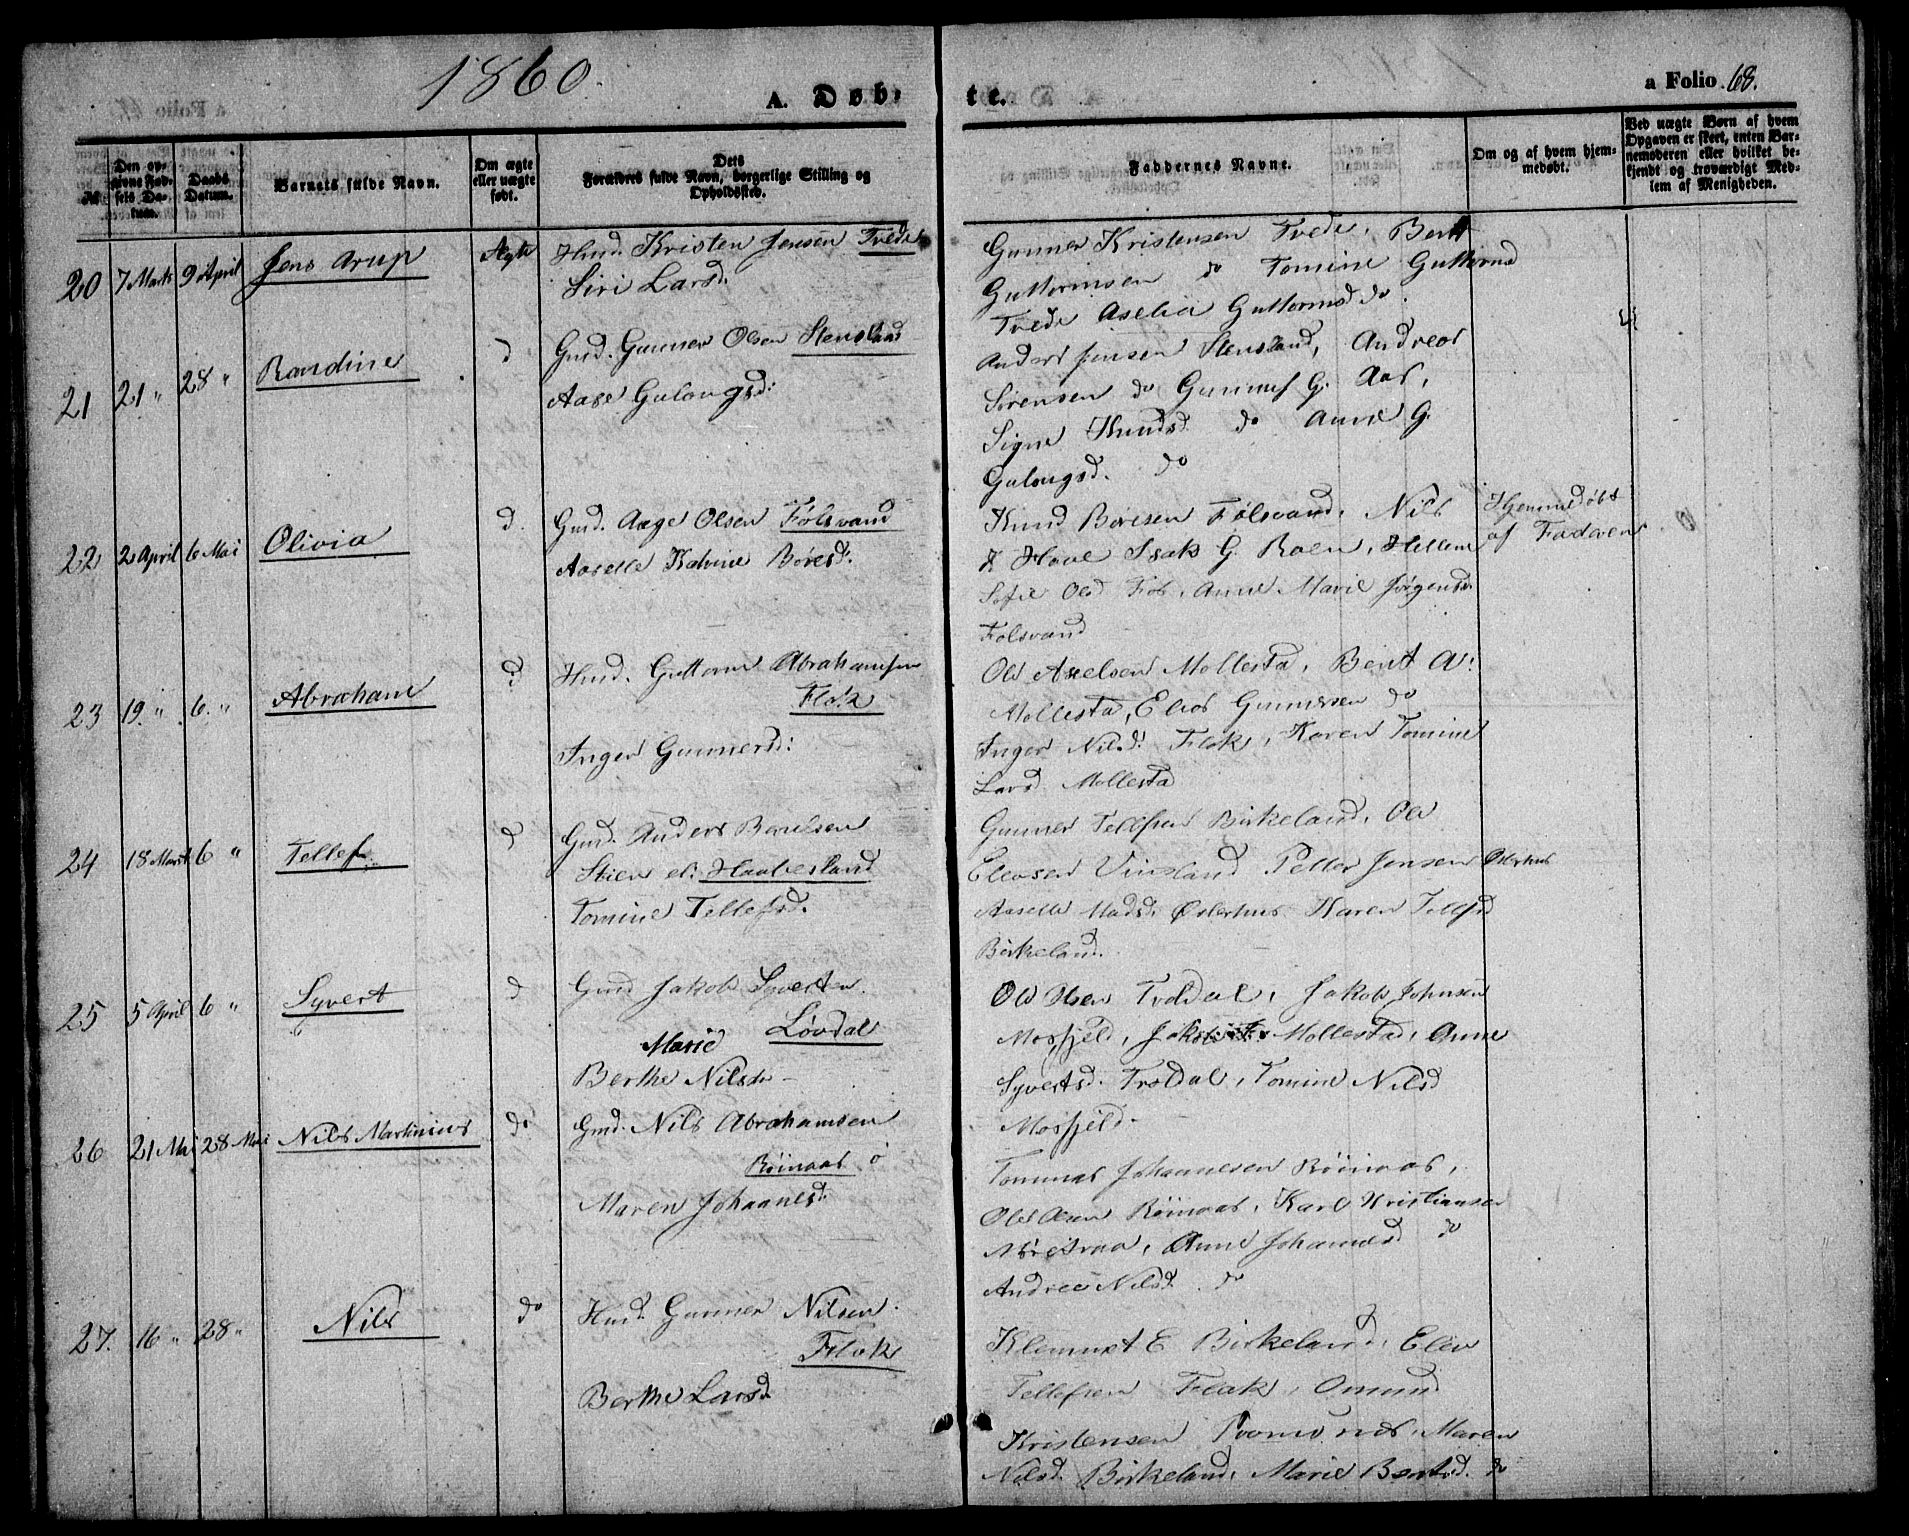 1860.
A. Døbte.
a Folio 68.
№
Den opgivne Fødsels Datum.
Daabs Datum.
Barnets fulde Navn.
Om ægte eller uægte født.
Dets Forældres fulde Navn, borgerlige Stilling og Opholdssted.
Faddernes Navne.
Om og af hvem hjemmedøbt.
Ved uægte Børn af hvem Opgaven er skeet, enten Barnemoderen eller hvilket bekjendt og troværdigt Medlem af Menigheden.
20 7 Marts 9 April Jens Arup Ægte Husd. Kristen Jensen Tvede
Siri Larsd.
Gunner Kristensen Tvede, Bent
Guttormsen do Tomine Guttormsd
Tvede Aselia Guttormsd do.
21 21 " 28 " Randine d Gmd. Gunner Olsen Stensland
Aase Gulongsd:
Anders Jensen Stensland, Andreas
Sørensen do Gunnuf G. Aas,
Signe Knudsd. do Anne G.
Gulongsd. do
22 2 April 6 Mai Olivia d. Gmd. Aage Olsen Følsvand
Aaselle Katrine Børesd:
Knud Børesen Følsvand, Nils
K Hove Isak G. Roen, Hellene
Sofie Olsd Føs, Anne Marie Jørgensd.
Følsvand
Hjemmedøbt
af Faderen
23 19. " 6. " Abraham d Husd. Guttorm Abrahamsen
Flak
Inger Gunnersd:
Ole Axelsen Mollestad, Bent A.
Mollestad, Elias Gunnersen do
Inger Nilsd. Flak, Karen Tomine
Larsd Mollestad
24 18 Marts 6 " Tellef d Gmd. Anders Berulsen
Stien el: Haabesland
Tomine Tellefsd.
Gunner Tellefsen Birkeland, Ole
Elevsen Vinsland Petter Jensen Østerhus
Aaselle Madsd. Østerhus Karen Tellefsd
Birkeland.
25 5 April 6 " Syvert d Gmd Jakob Syvertsen.
Løvdal
Marie
Berthe Nilsd.
Ole Olsen Troldal, Jakob Johnsen
Mosfjeld, Mollestad, Anne
Syvertsd. Troldal, Tomine Nilsd
Mosfjeld.
26 21 Mai 28 Mai Nils Martinius do Gmd. Nils Abrahamsen
Røinaas
Maren Johannesd:
Tommas Johannesen Røinaas,
Ole Olsen Røinaas, Karl Kristiansen
Anne Johannesd do
Andrea Nilsd. do
27. 16 " 28 " Nils do Husd. Gunner Nilsen.
Flak
Berthe Larsd.
Klemmet E Birkeland, Elev
Tellefsen Flak, Omund
Kristensen Maren
Nilsd. Birkeland, Marie Bentsd. do